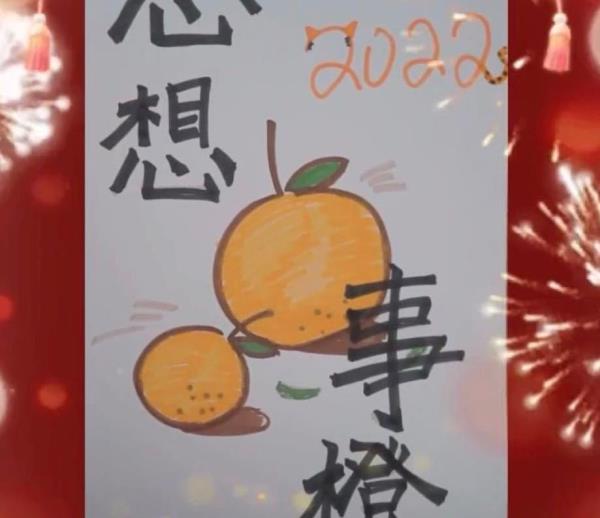 2022
心想
事橙